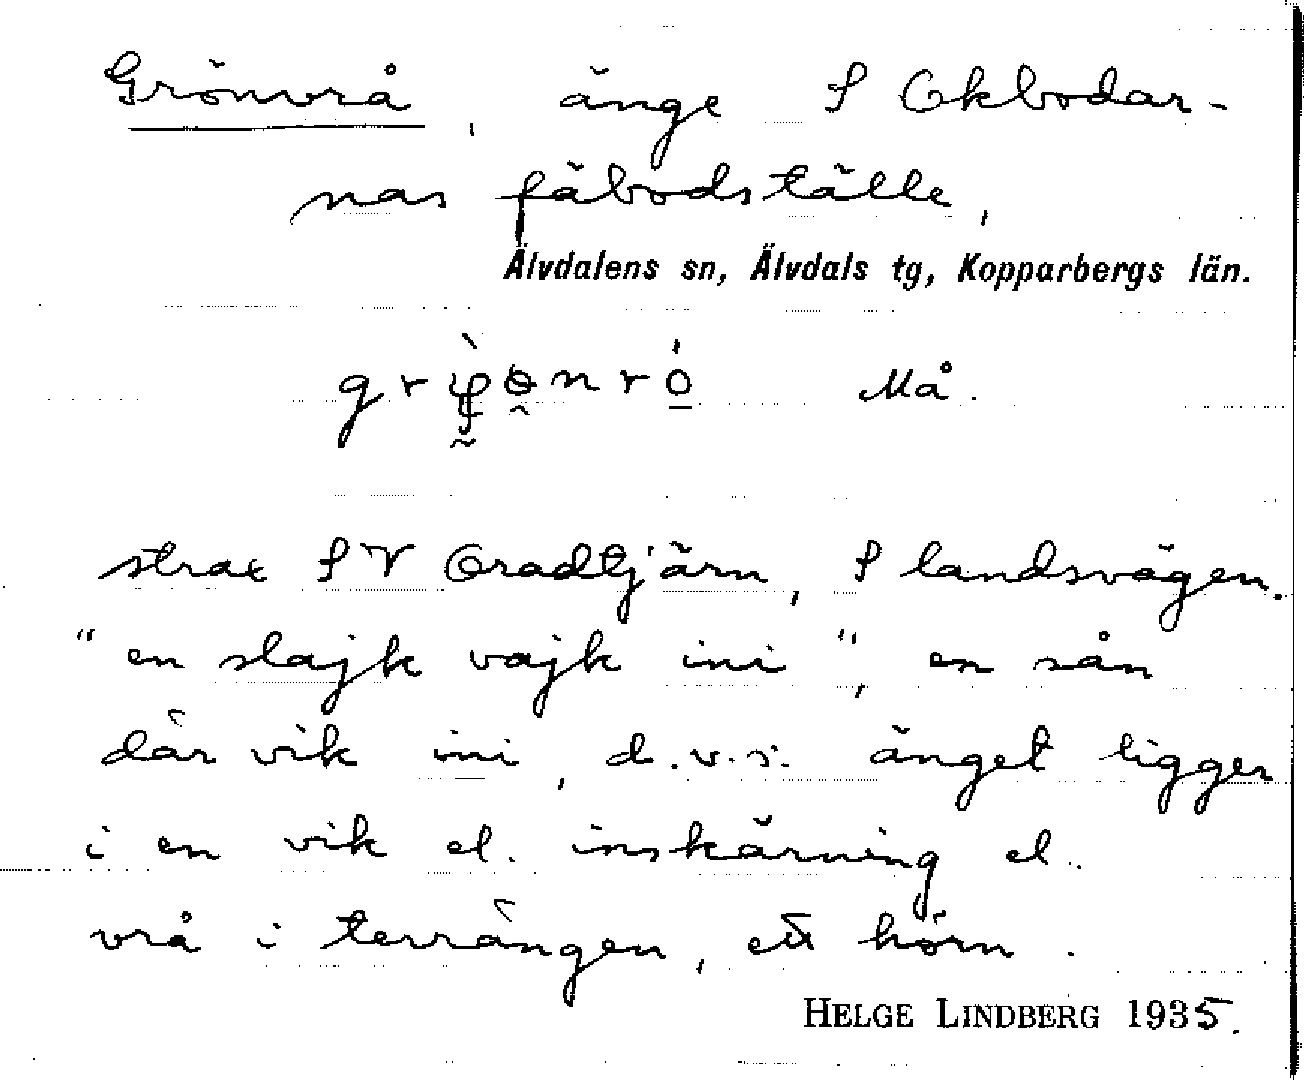 Grönvrå, änge S Okbodar-
nas fäbodställe,
Älvdalens sn, Älvdals tg, Kopparbergs län.
Må.
strax SV Oradtjärn, S landsvägen.
"en slajk vajk ini", en sån
där vik ini, d.v.s. änget ligger
i en vik el. inskärning el.
vrå i terrängen, ett hörn.
HELGE LINDBERG 1935.